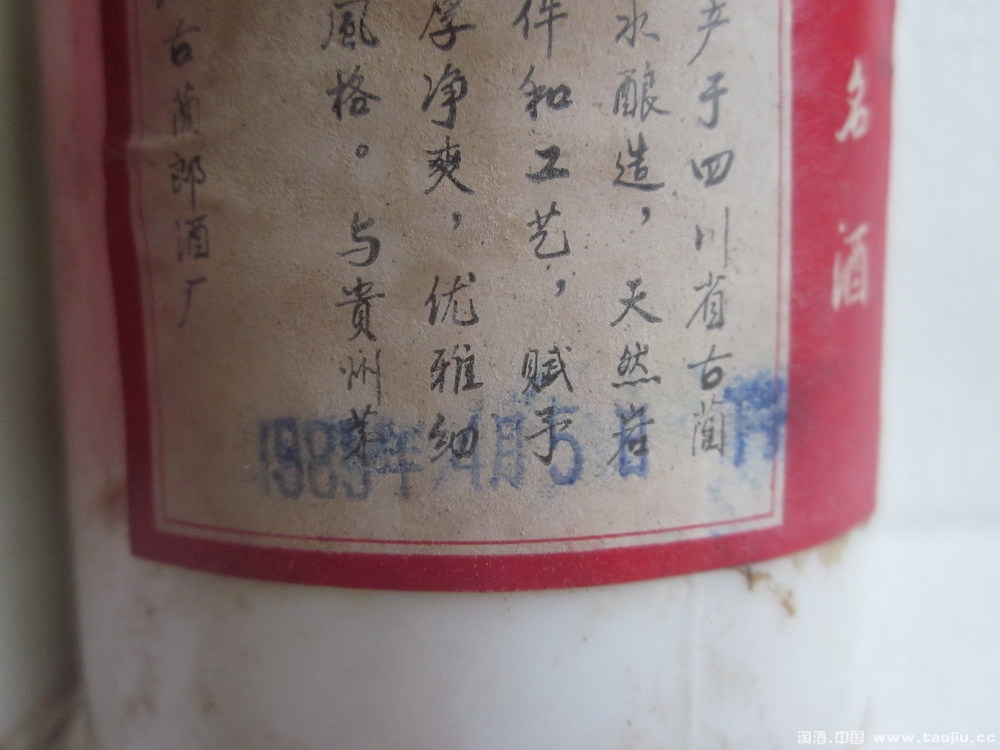 名酒
产于四川省古蔺
水酿造，天然岩
件和工艺，赋予
厚净爽，优雅细
風格。与貴州茅
古蔺郎酒厂
1989年4月5日
淘酒.中国 www.taojiu.cc